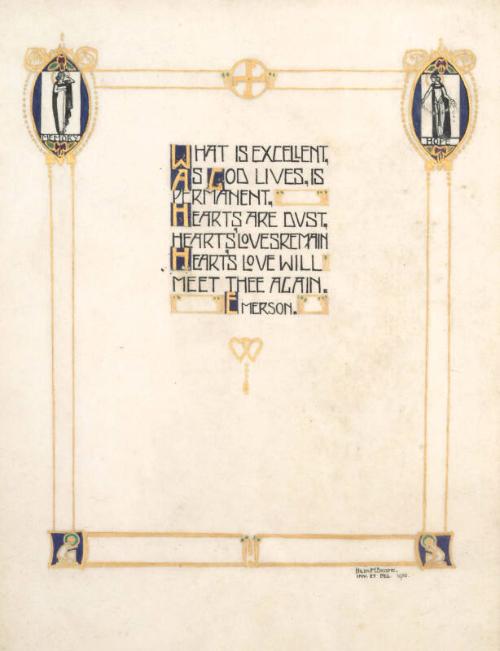 MEMORY
HOPE
WHAT IS EXCELLENT,
AS GOD LIVES, IS
PERMANENT,
HEARTS ARE DUST,
HEARTS' LOVES REMAIN
HEART'S LOVE WILL
MEET THEE AGAIN.
EMERSON.
INV. ET DEL. 1910.